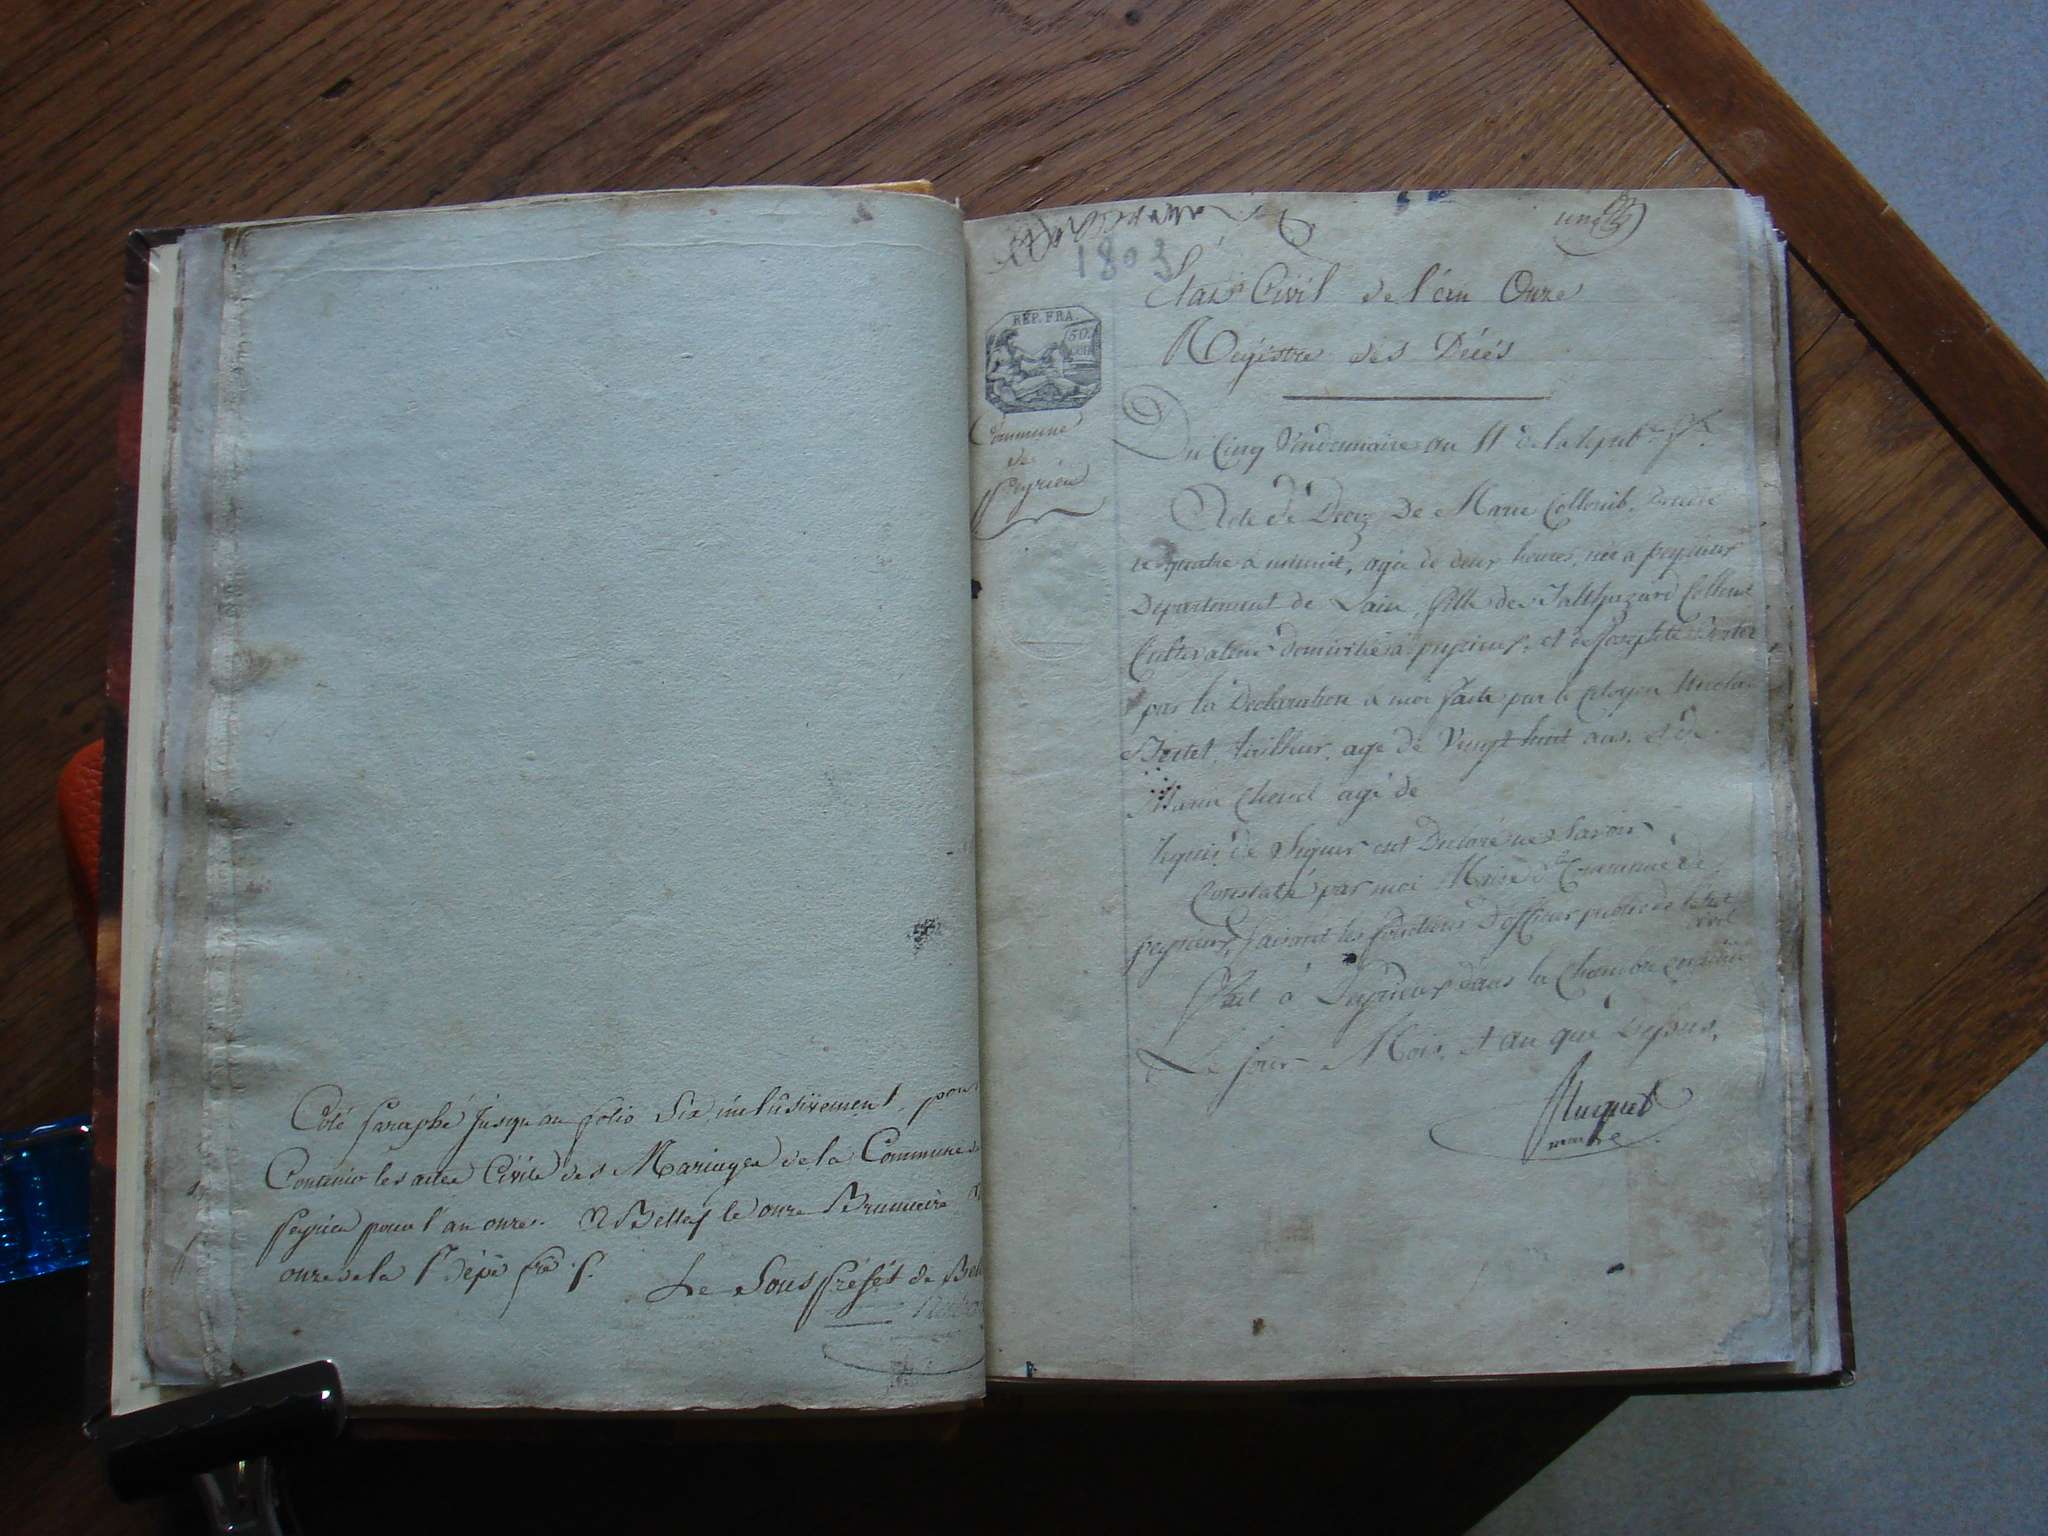 Coté paraphé jusqu au folio Six inclusivement, pour
Contenir les actes Civils des Mariages de la Commune de
peyrieu pour l'an onze. A Belley le onze Brumaire
onze de la
Le Sous préfét de Bell
1803
une
Etat Civil de l'an Onze
Registre des Décés
REP. FRA.
50
Commune
de
peyrieu
Du Cinq Vendemiaire an 11 de la repub
Acte de Decez de Marie Collomb, decedée
le quatre a minuit, agée de deux heures, née a peyrieux
Departement de Lain, fille de Balthazard Collomb
Cultivateur domicilié a peyrieux, et de Josephte Bertet
par la Declaration a moi faite par le citoyen Nicola
Bertet, tailleur, age de Vingt huit ans, et de
Marin agé de
requis de Signer ont Declaré ne Savoir
Constaté par moi Maire de la Commune de
peyrieux, faisant les fonctions D'officier public de l'état
civil
Fait a Peyrieux dans la Chambre
Le jour Mois, et an que Dessus,
maire